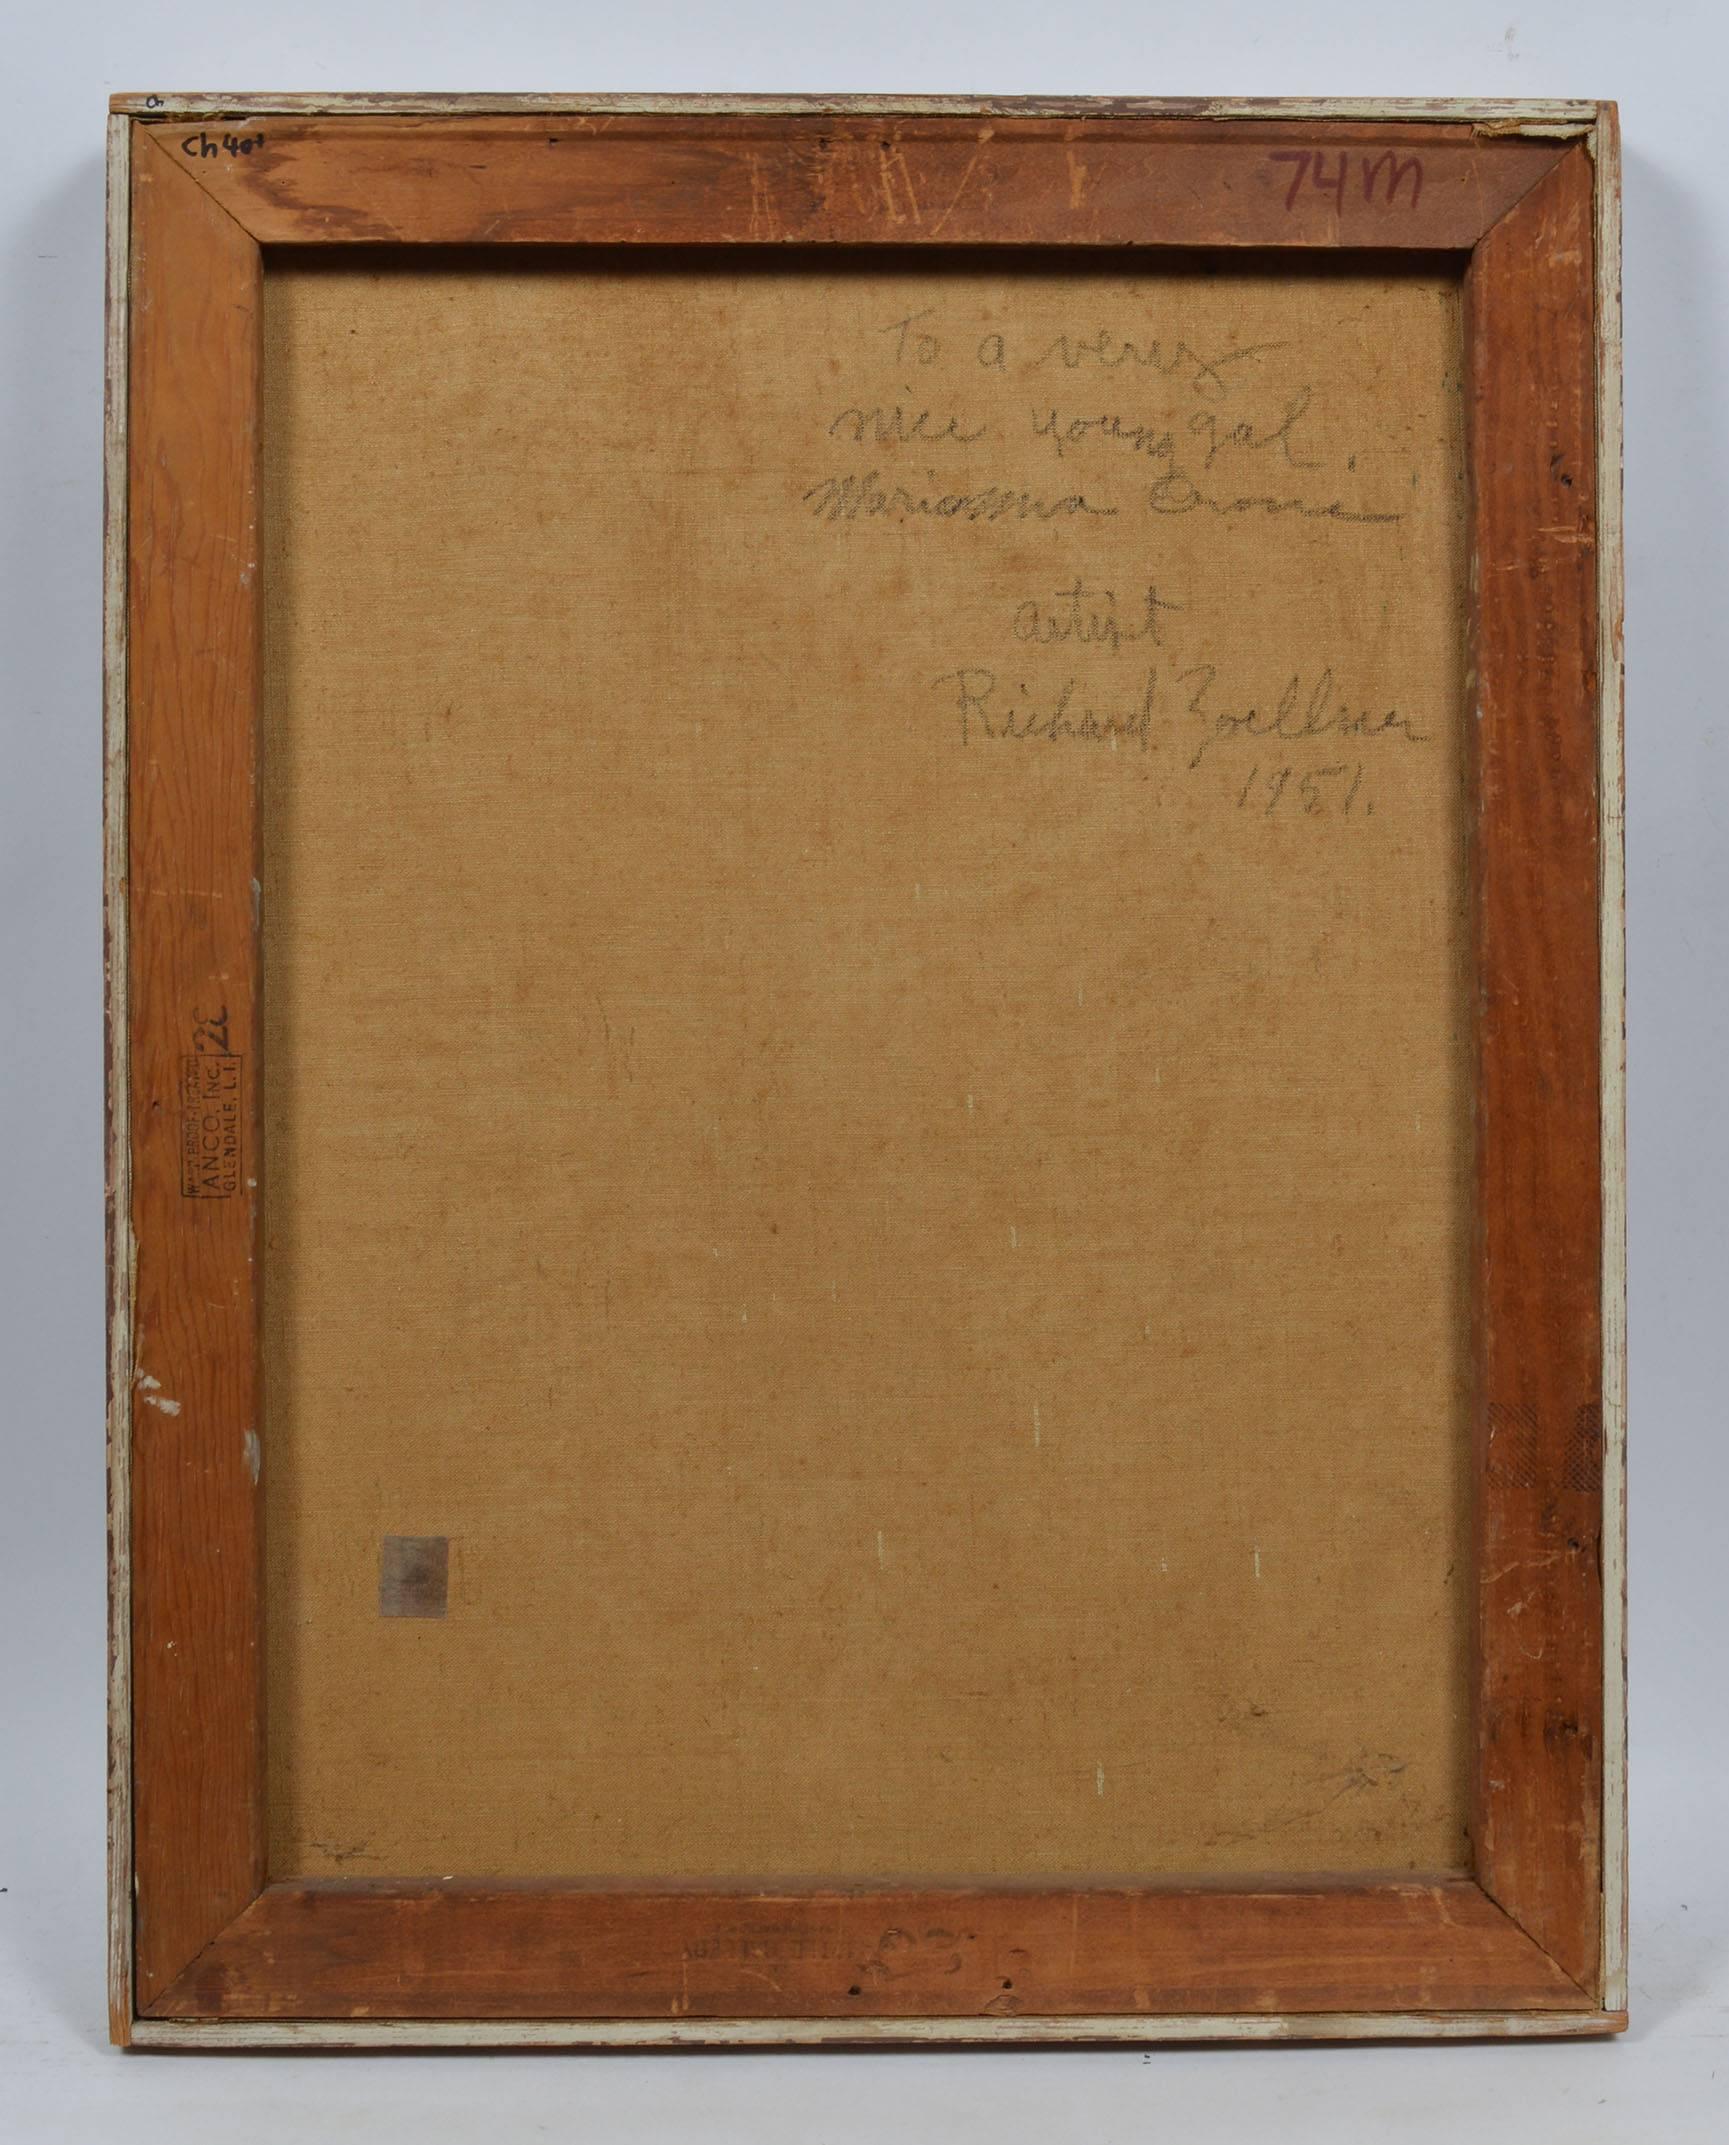 Ch 40+
74M
To a very
nice young gal.
Marianna
artist
Richard Zoellner
1951.
ANCO, INC.
GLENDALE, L.I.